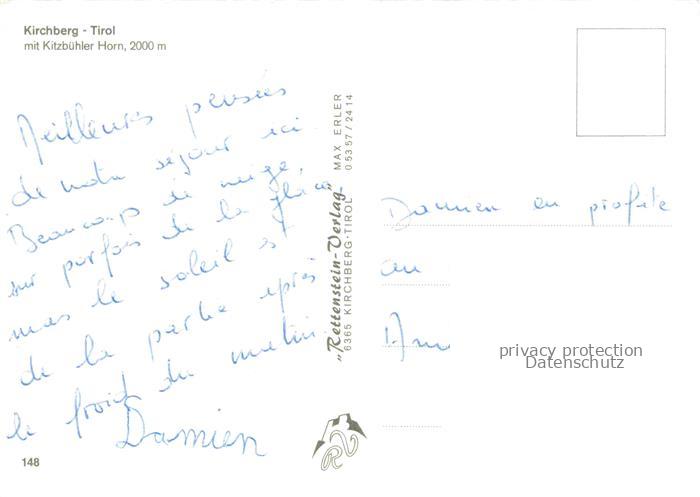 Kirchberg - Tirol
mit Kitzbühler Horn, 2000 m
Meilleures pensées
de notre séjour ici
Beaucoup de neige,
sur parfois de la glace
mais le soleil es
de la partie après
le froid du matin
Damien
148
„Rettenstein-Verlag"
6365 KIRCHBERG-TIROL
MAX ERLER
05357/2414
RV
Damien en profite
au
privacy protection
Datenschutz